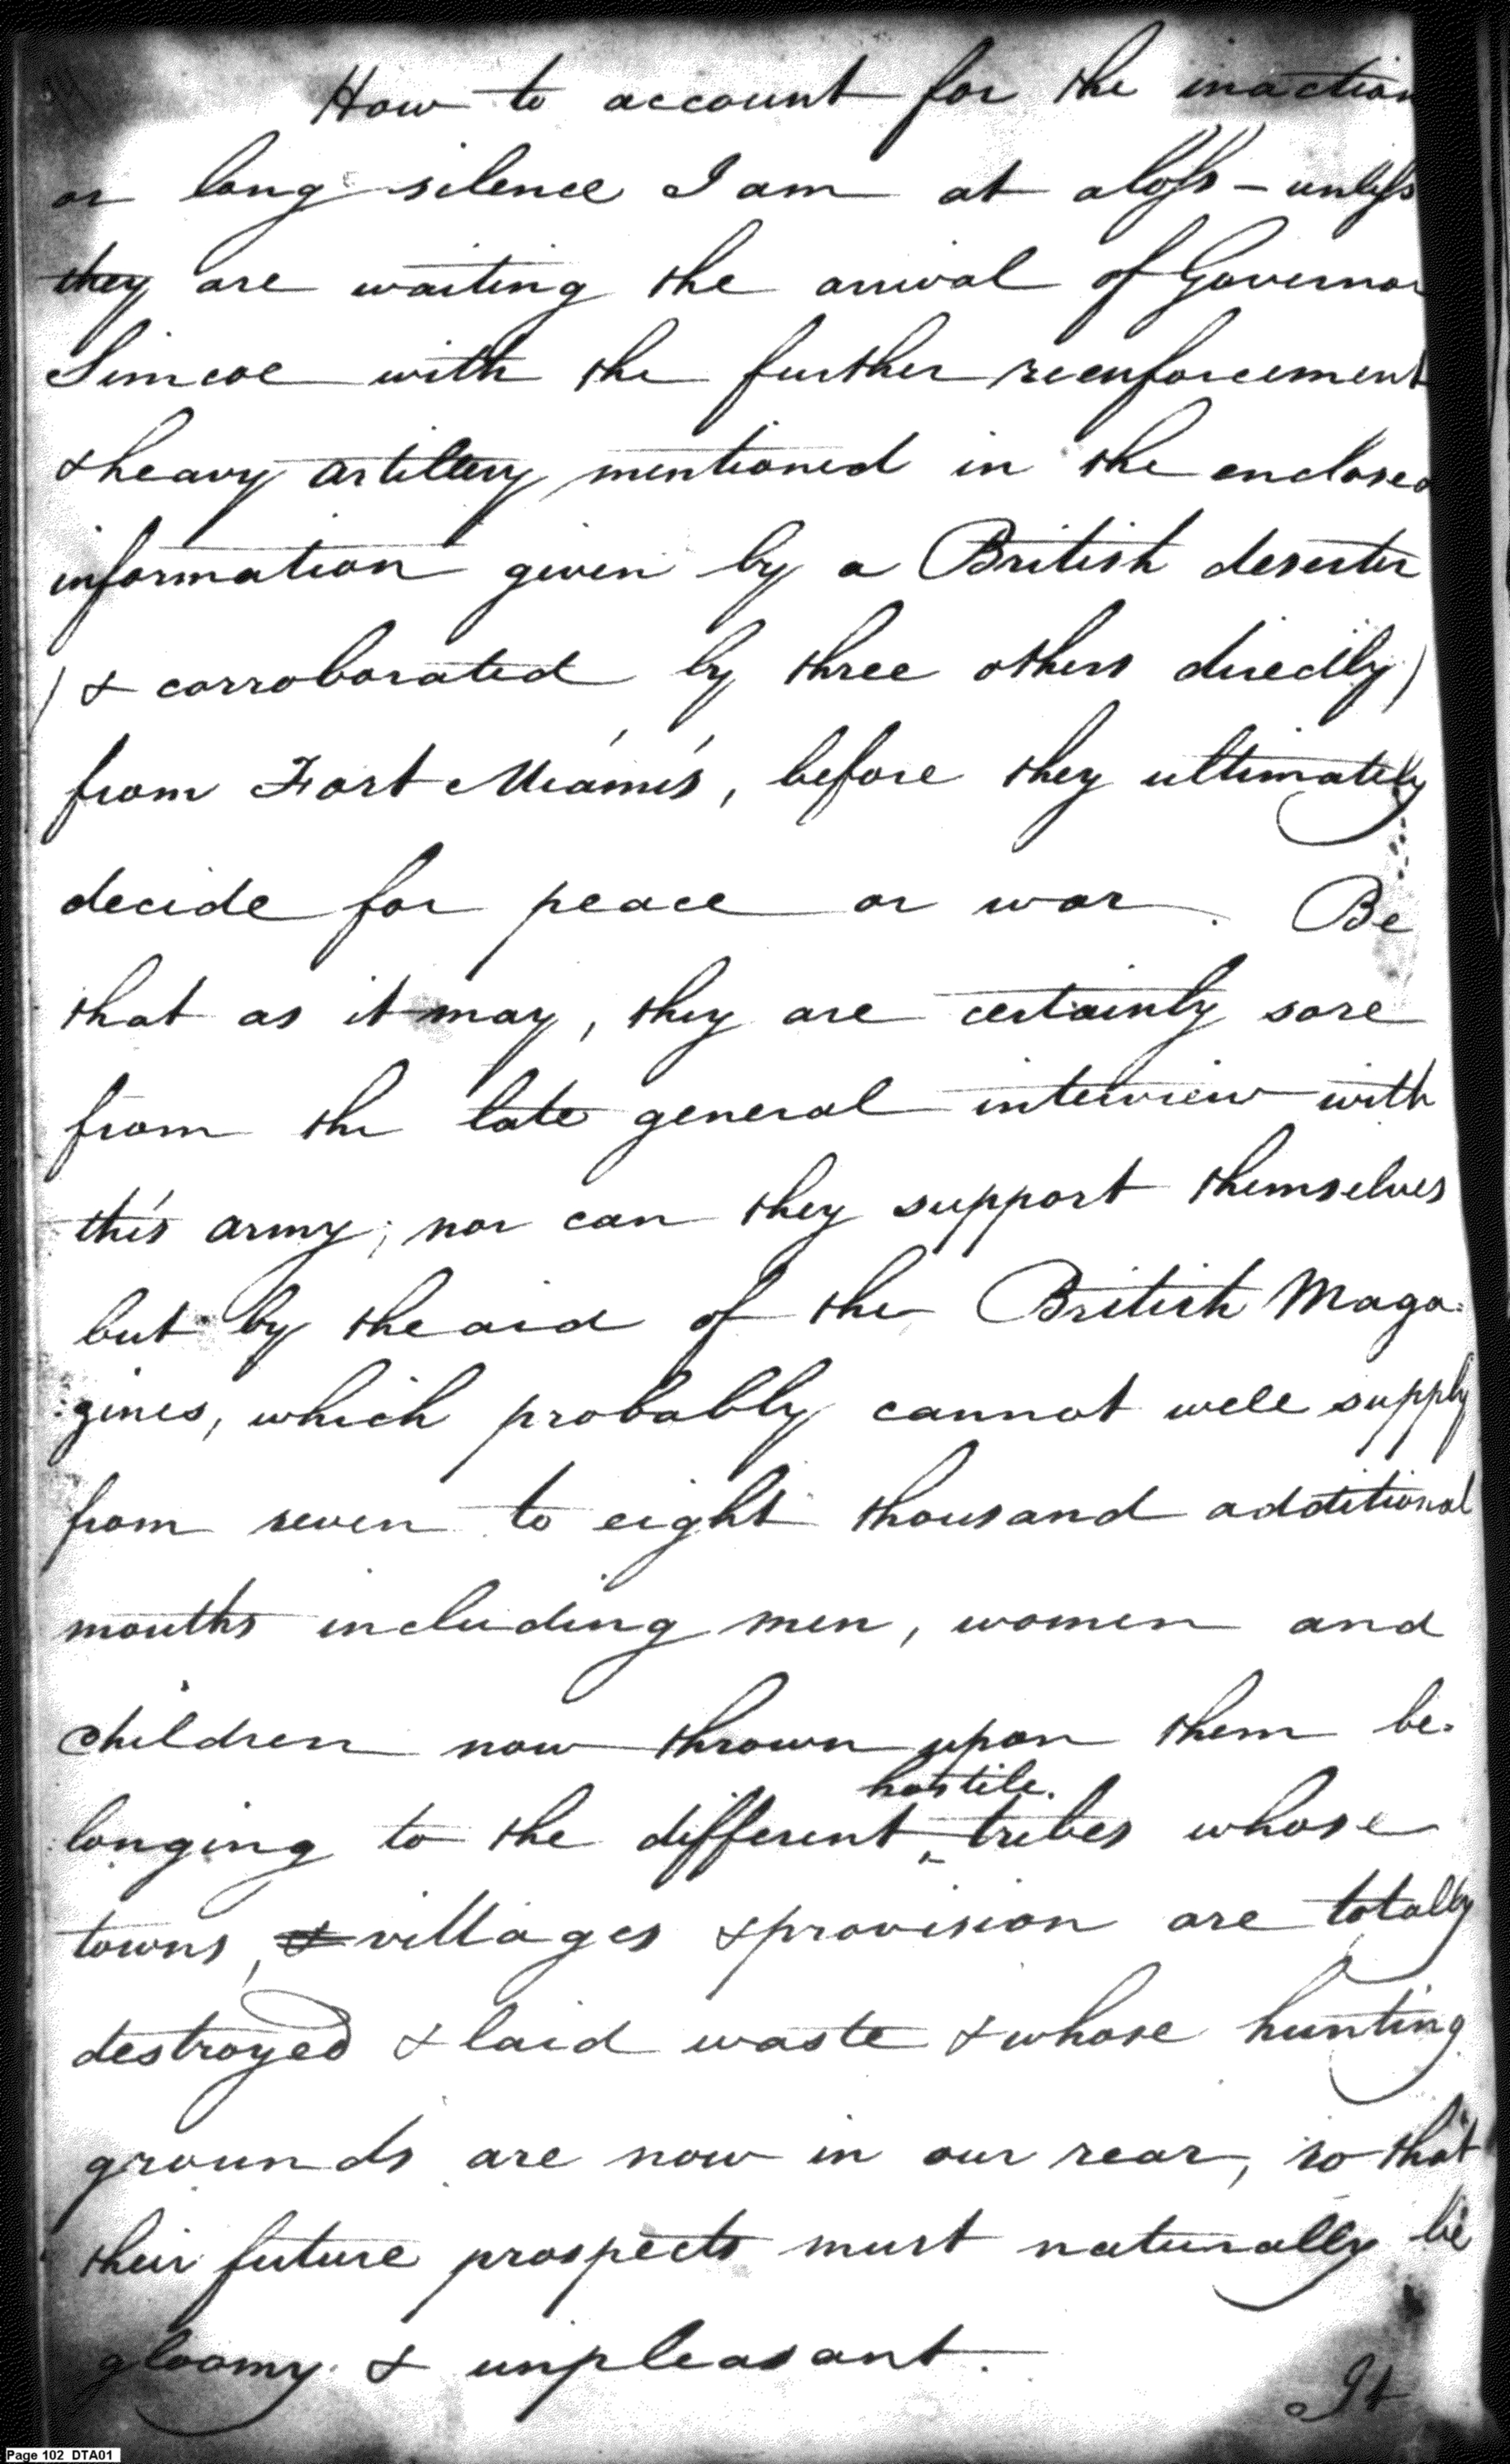 How to account for the inaction
or long silence I am at a loss – unless
they are waiting the arrival of Governor
Simcoe with the further reenforcement
& heavy artillery mentioned in the enclosed
information given by a British deserter
(& corroborated by three others directly)
from Fort Miamis, before they ultimately
decide for peace or war. Be
that as it may, they are certainly sore
from the late general interview with
this army; nor can they support themselves
but by the aid of the British Maga:
:zines, which probably cannot well supply
from seven to eight thousand additional
mouths including men, women and
children now thrown upon them be-
hostile.
longing to the different ‸ tribes whose
towns, & villages & provision are totally
destroyed & laid waste & whose hunting
grounds are now in our rear, so that
their future prospects must naturally be
gloomy & unpleasant.
It
Page 102 DTA01